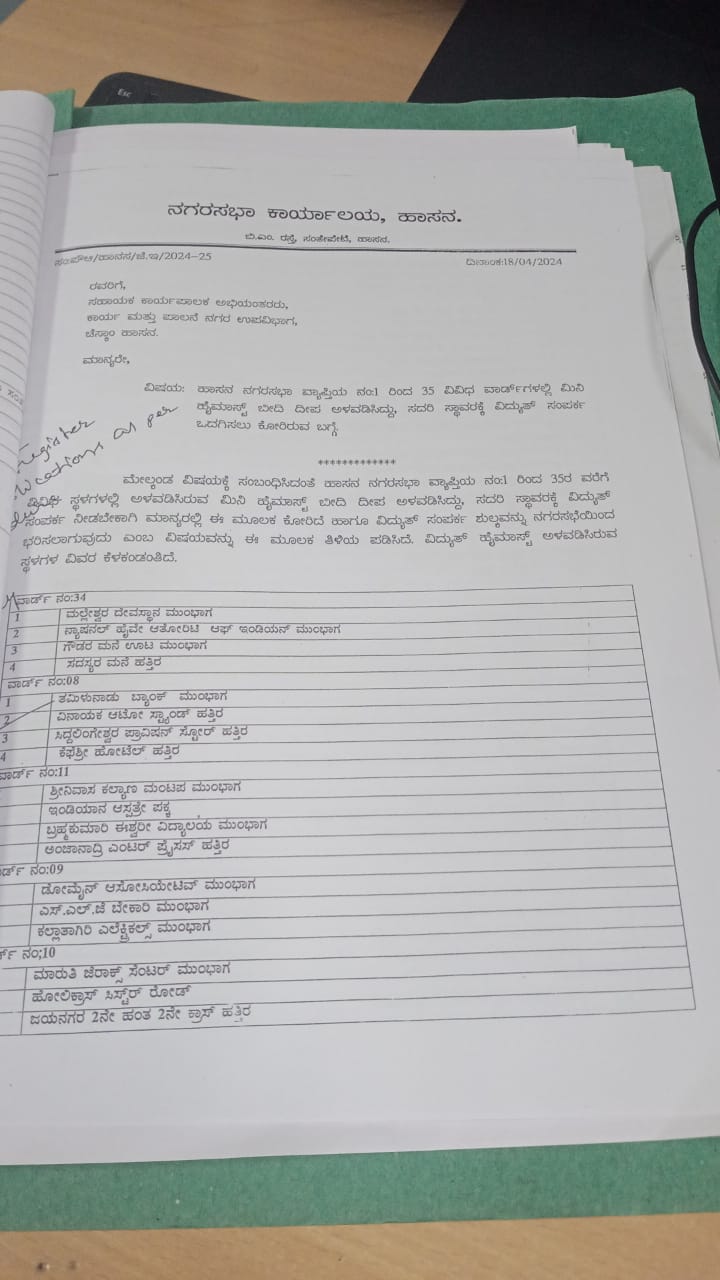 Esc
ನಗರಸಭಾ ಕಾರ್ಯಾಲಯ, ಹಾಸನ.
ಬಿ.ಎಂ. ರಸ್ತೆ, ಸಂತೇಪೇಟೆ, ಹಾಸನ.
/ಹಾನಸ/ಜೆ.ಇ/2024-25
ದಿನಾಂಕ:18/04/2024
ರವರಿಗೆ,
ಸಹಾಯಕ ಕಾರ್ಯಪಾಲಕ ಅಭಿಯಂತರರು,
ಕಾರ್ಯ ಮತ್ತು ಪಾಲನೆ ನಗರ ಉಪವಿಭಾಗ,
ಚೆಸ್ಕಾಂ ಹಾಸನ.
ಮಾನ್ಯರೇ,
ವಿಷಯ: ಹಾಸನ ನಗರಸಭಾ ವ್ಯಾಪ್ತಿಯ ನಂ:1 ರಿಂದ 35 ವಿವಿಧ ವಾರ್ಡ್‌ಗಳಲ್ಲಿ ಮಿನಿ
ಹೈಮಾಸ್ಟ್ ಬೀದಿ ದೀಪ ಅಳವಡಿಸಿದ್ದು, ಸದರಿ ಸ್ಥಾವರಕ್ಕೆ ವಿದ್ಯುತ್ ಸಂಪರ್ಕ
ಒದಗಿಸಲು ಕೋರಿರುವ ಬಗ್ಗೆ.
Register
locations as per
*************
ಮೇಲ್ಕಂಡ ವಿಷಯಕ್ಕೆ ಸಂಬಂಧಿಸಿದಂತೆ ಹಾಸನ ನಗರಸಭಾ ವ್ಯಾಪ್ತಿಯ ನಂ:1 ರಿಂದ 35ರ ವರೆಗೆ
ವಿವಿಧ ಸ್ಥಳಗಳಲ್ಲಿ ಅಳವಡಿಸಿರುವ ಮಿನಿ ಹೈಮಾಸ್ಟ್ ಬೀದಿ ದೀಪ ಅಳವಡಿಸಿದ್ದು, ಸದರಿ ಸ್ಥಾವರಕ್ಕೆ ವಿದ್ಯುತ್
ಸಂಪರ್ಕ ನೀಡಬೇಕಾಗಿ ಮಾನ್ಯರಲ್ಲಿ ಈ ಮೂಲಕ ಕೋರಿದೆ ಹಾಗೂ ವಿದ್ಯುತ್ ಸಂಪರ್ಕ ಶುಲ್ಕವನ್ನು ನಗರಸಭೆಯಿಂದ
ಭರಿಸಲಾಗುವುದು ಎಂಬ ವಿಷಯವನ್ನು ಈ ಮೂಲಕ ತಿಳಿಯ ಪಡಿಸಿದೆ. ವಿದ್ಯುತ್ ಹೈಮಾಸ್ಟ್ ಅಳವಡಿಸಿರುವ
ಸ್ಥಳಗಳ ವಿವರ ಕೆಳಕಂಡಂತಿದೆ.
ವಾರ್ಡ್ ನಂ:34
1 ಮಲ್ಲೇಶ್ವರ ದೇವಸ್ಥಾನ ಮುಂಭಾಗ
2 ನ್ಯಾಷನಲ್ ಹೈವೇ ಆತೋರಿಟಿ ಆಫ್ ಇಂಡಿಯನ್ ಮುಂಭಾಗ
3 ಗೌಡರ ಮನೆ ಊಟ ಮುಂಭಾಗ
4 ಸದಸ್ಯರ ಮನೆ ಹತ್ತಿರ
ವಾರ್ಡ್ ನಂ:08
1 ತಮಿಳುನಾಡು ಬ್ಯಾಂಕ್ ಮುಂಭಾಗ
2 ವಿನಾಯಕ ಆಟೋ ಸ್ಟ್ಯಾಂಡ್ ಹತ್ತಿರ
3 ಸಿದ್ದಲಿಂಗೇಶ್ವರ ಪ್ರಾವಿಷನ್ ಸ್ಟೋರ್ ಹತ್ತಿರ
4 ಕೆಫೆಶ್ರೀ ಹೋಟೆಲ್ ಹತ್ತಿರ
ವಾರ್ಡ್ ನಂ:11
ಶ್ರೀನಿವಾಸ ಕಲ್ಯಾಣ ಮಂಟಪ ಮುಂಭಾಗ
ಇಂಡಿಯಾನ ಆಸ್ಪತ್ರೇ ಪಕ್ಕ
ಬ್ರಹ್ಮಕುಮಾರಿ ಈಶ್ವರೀ ವಿದ್ಯಾಲಯ ಮುಂಭಾಗ
ಅಂಜಾನಾದ್ರಿ ಎಂಟರ್ ಪ್ರೈಸಸ್ ಹತ್ತಿರ
ರ್ಡ್ ನಂ:09
ಡೋಮೈನ್ ಆಸೋಸಿಯೇಟಿವ್ ಮುಂಭಾಗ
ಎಸ್.ಎಲ್.ಜೆ ಬೇಕಾರಿ ಮುಂಭಾಗ
ಕಲ್ಲಾತಾಗಿರಿ ಎಲೆಕ್ಟ್ರಿಕಲ್ಸ್ ಮುಂಭಾಗ
ರ್ಡ್ ನಂ;10
ಮಾರುತಿ ಜೆರಾಕ್ಸ್ ಸೆಂಟರ್ ಮುಂಭಾಗ
ಹೋಲಿಕ್ರಾಸ್ ಸಿಸ್ಟರ್ ರೋಡ್
ಜಯನಗರ 2ನೇ ಹಂತ 2ನೇ ಕ್ರಾಸ್ ಹತ್ತಿರ